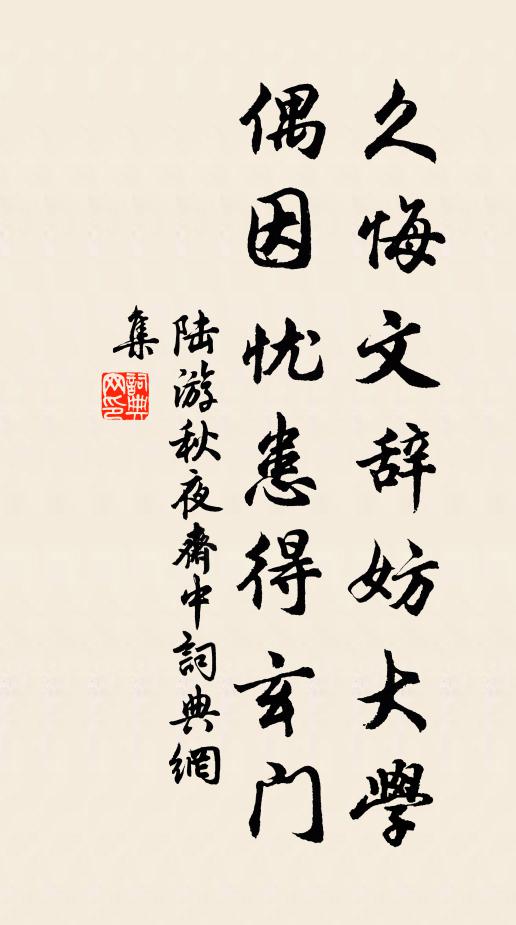 久悔文辞妨大學
偶因忧患得玄门
陆游秋夜齋中詞典網
集
詞典
网印